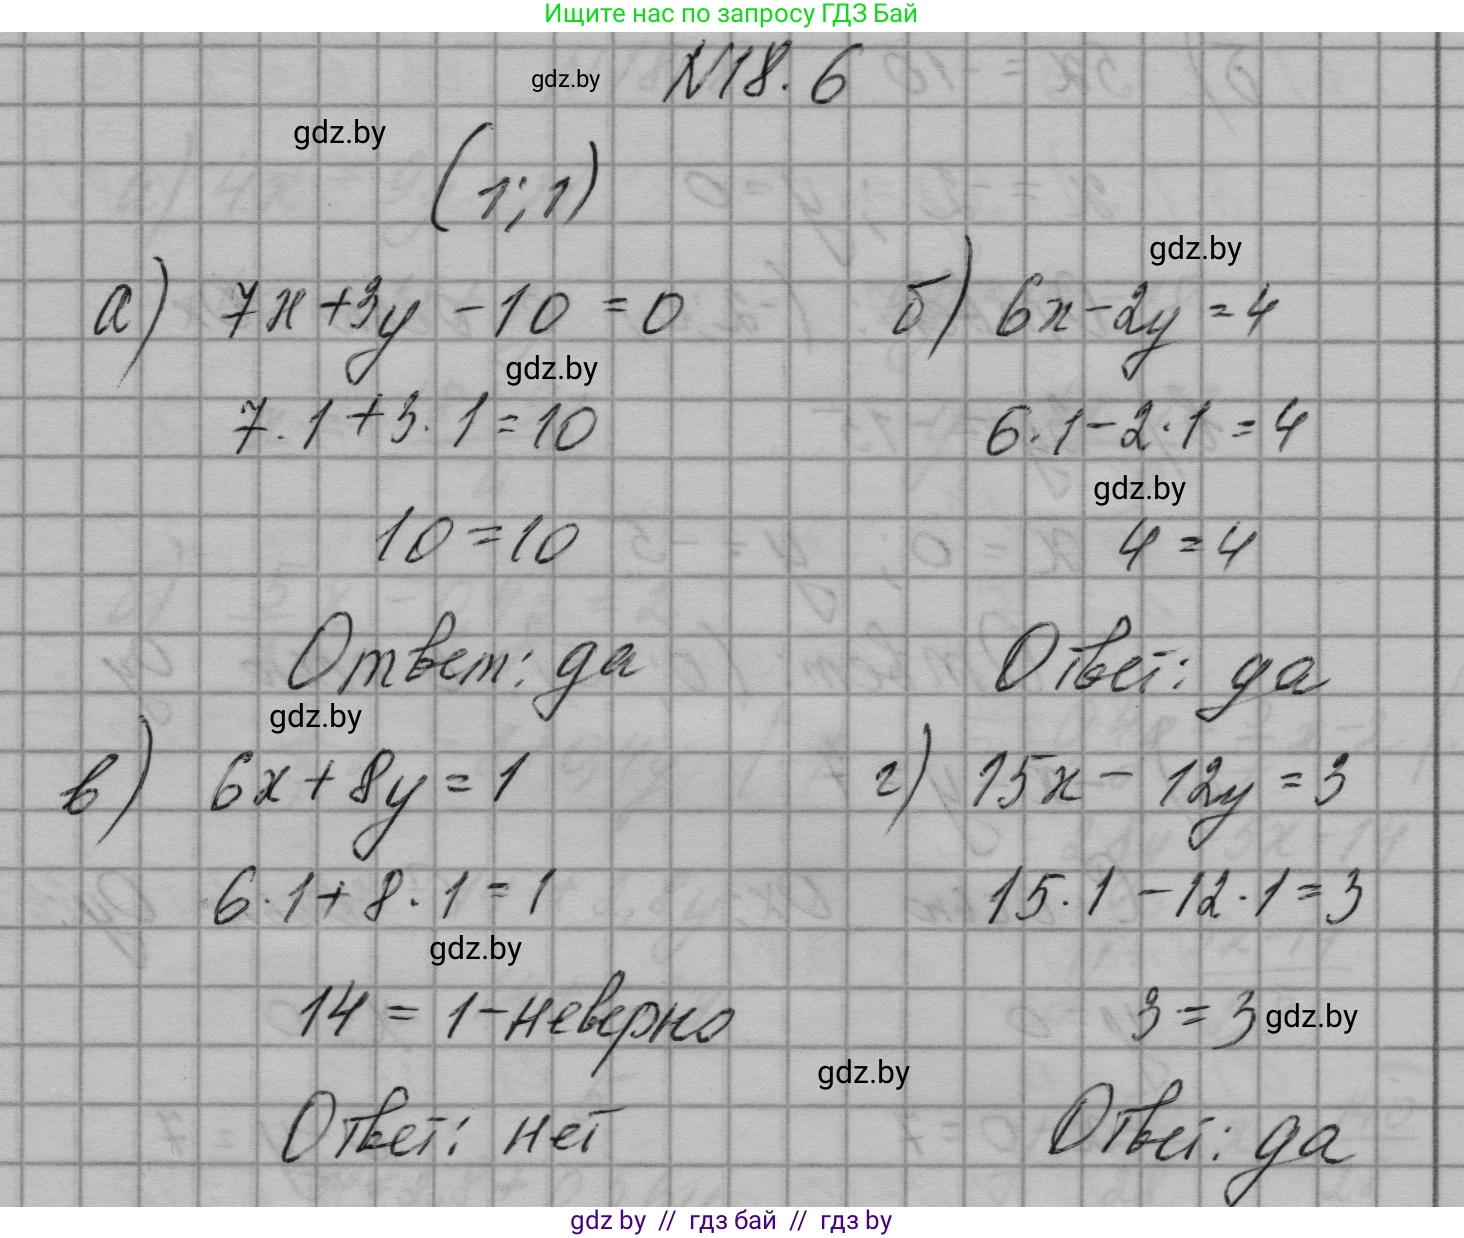 Ищите нас по запросу ГДЗ Бай
N18.6
gdz.by
gdz.by
(1;1)
gdz.by
а) 7x+3y-10=0
б) 6x-2y=4
gdz.by
7·1+3·1=10
6·1-2·1=4
gdz.by
10=10
4=4
Ответ: да
Ответ: да
gdz.by
в) 6x+8y=1
г) 15x-12y=3
6·1+8·1=1
15·1-12·1=3
gdz.by
14=1-неверно
3=3
gdz.by
gdz.by
Ответ: нет
Ответ: да
gdz by // гдз бай // гдз by